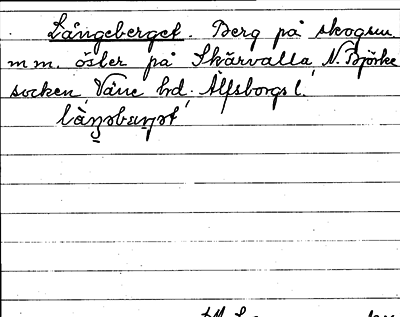 Långeberget. Berg på skogsm.
m m. öster på Skärvalla, N. Björke
socken, Väne hd. Älfsborgs l.